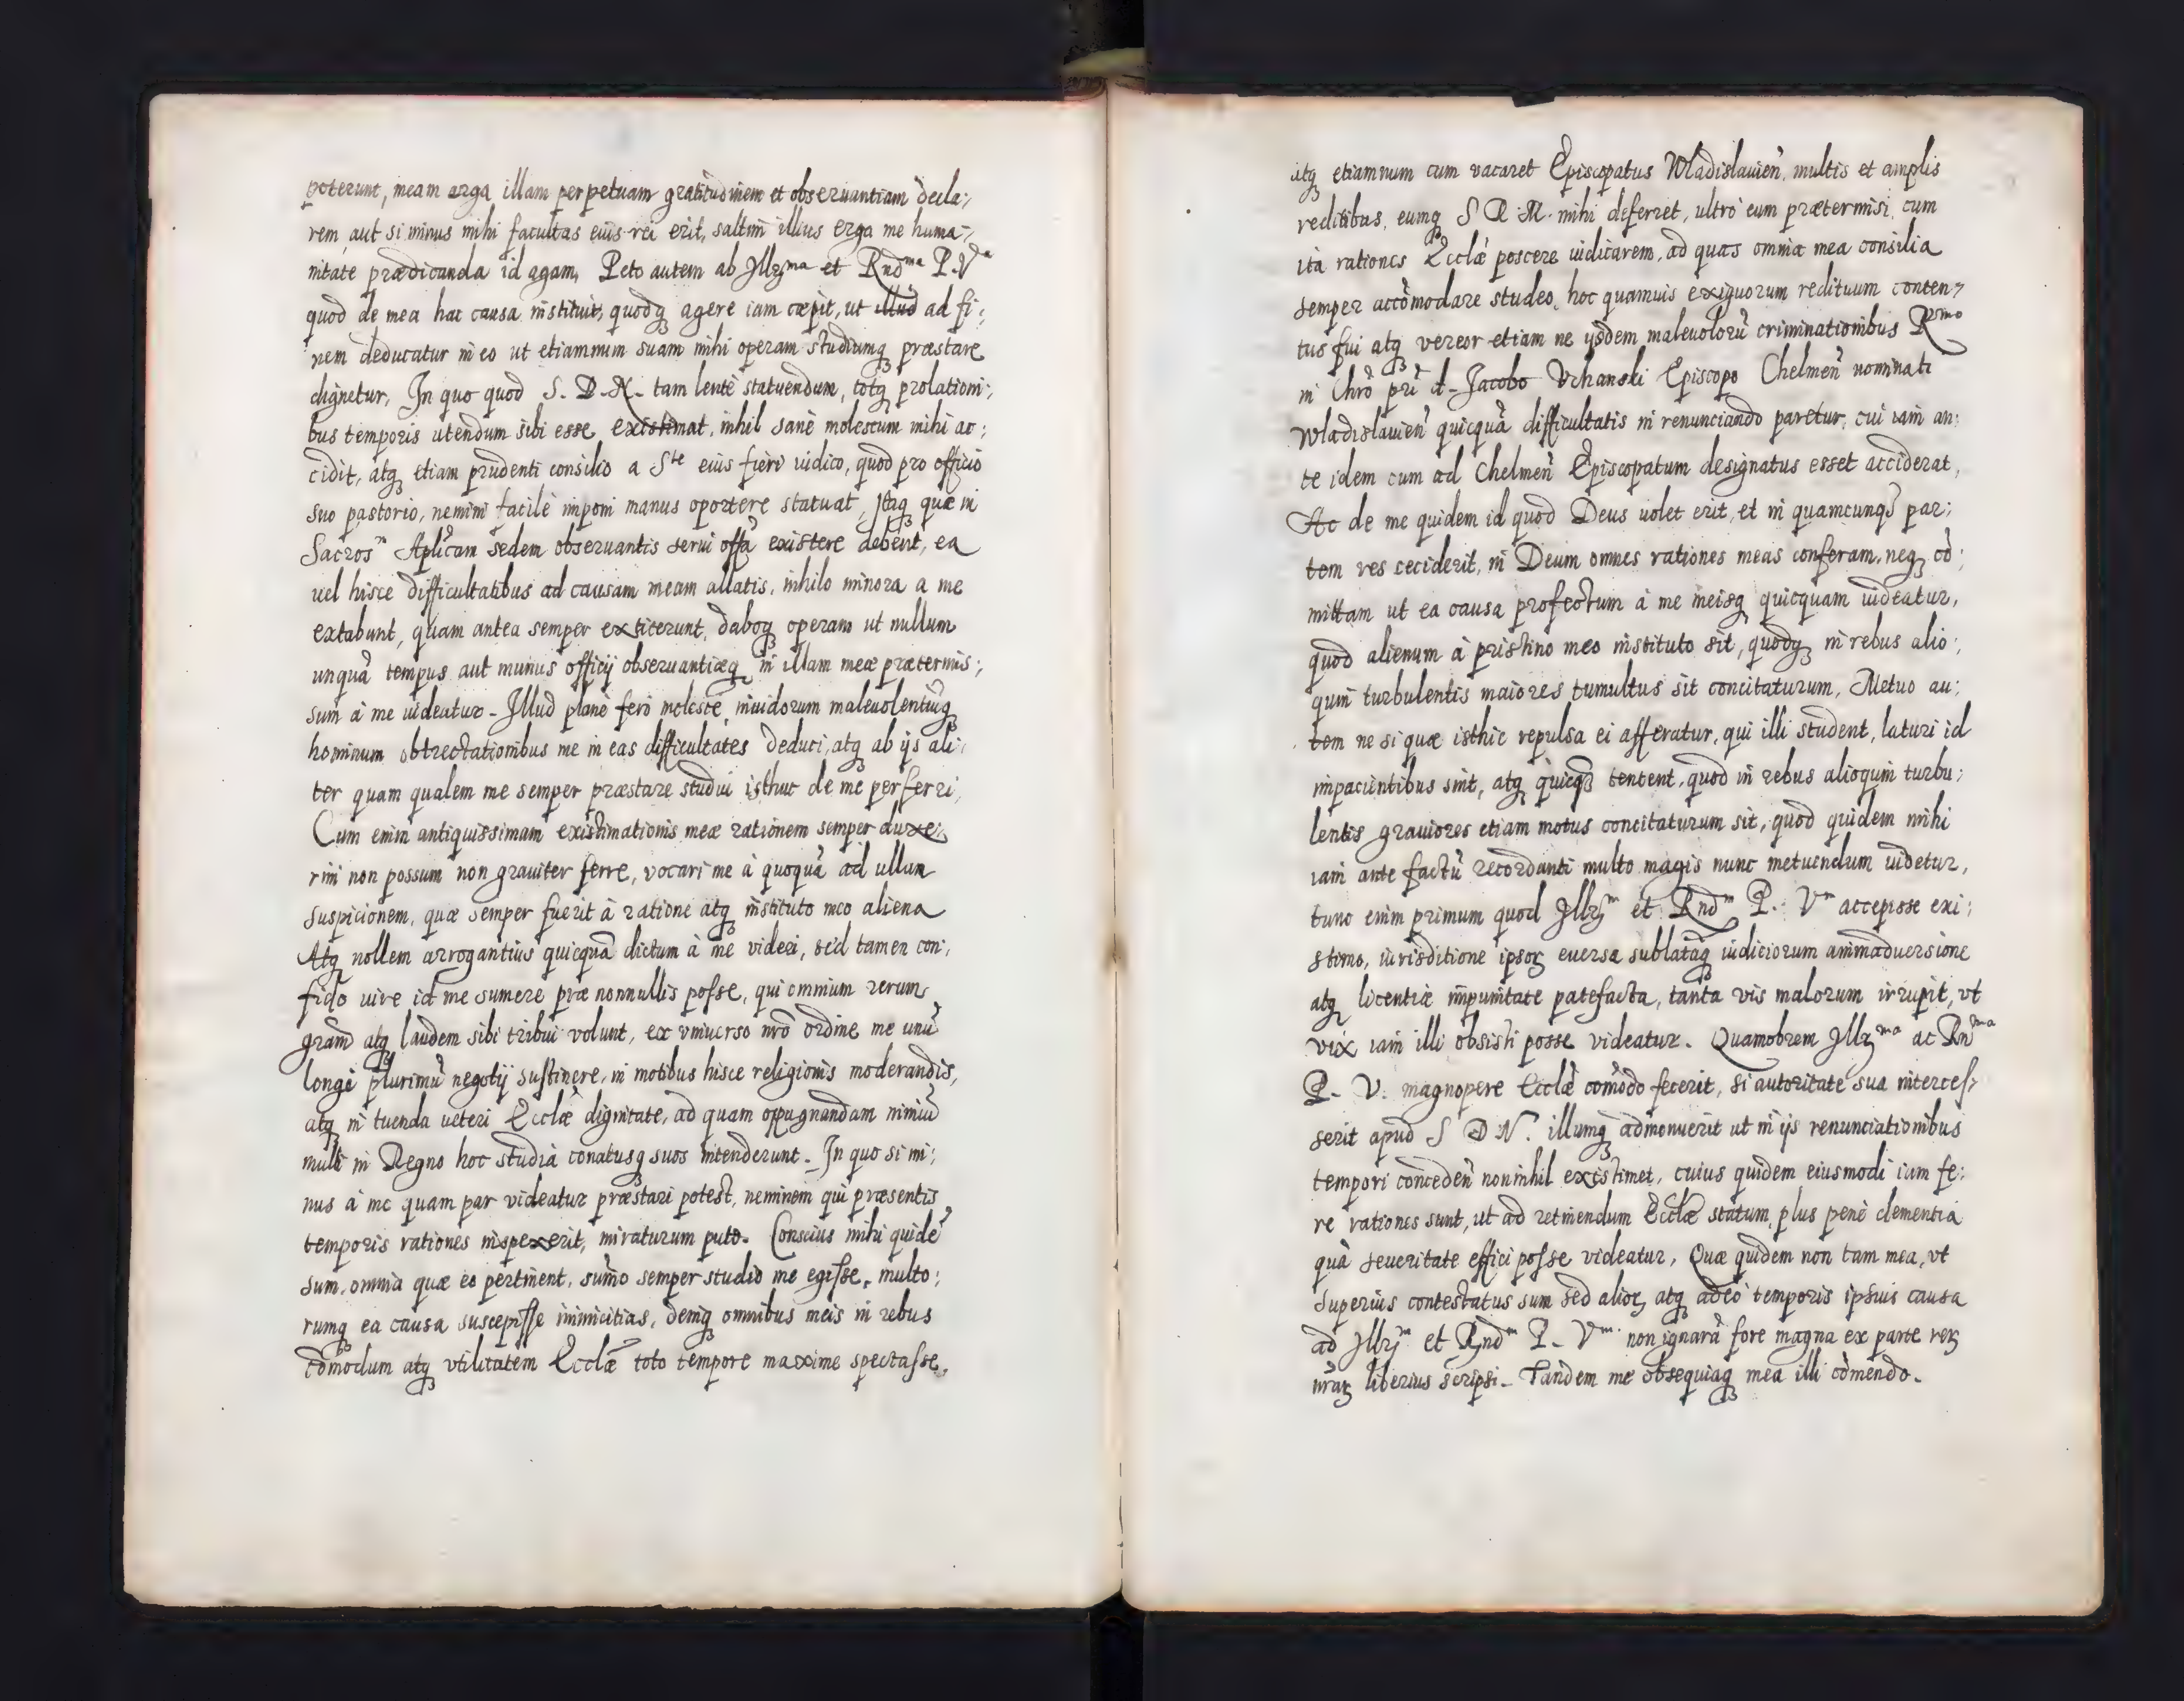 poterunt, meam erga illam perpetuam gratitudinem et obseruantiam decla;
rem, aut si minus mihi facultas eius rei erit, saltim illius erga me huma-
nitate prædicanda id agam, Peto autem ab Illrma et Rndma P. Va
quod de mea hac causa instituit, quodq agere iam cœpit, ut illud ad fi;
nem deducatur in eo ut etiamnum suam mihi operam studiumq præstare
dignetur, In quo quod S. D. N. tam lentè statuendum, totq prolationi;
bus temporis utendum sibi esse existimat, inhil sanè molestum mihi ac;
cidit, atq etiam prudenti consilio a Ste eius fieri iudico, quod pro officio
suo pastorio, nemini facilè imponi manus oportere statuat, Itaq quæ in
Sacrosm Aplicam sedem obseruantis serui offa existere debent, ea
uel hisce difficultatibus ad causam meam allatis, inhilo minora a me
extabunt, quam antea semper extiterunt, daboq operam ut nullum
unquā tempus aut munus officij obseruantiæq in illam meæ prætermis;
sum à me uideatur. Illud planè fero molestè, inuidorum maleuolentiūq
hominum obtrectationibus me in eas difficultates deduci, atq ab ijs ali;
ter quam qualem me semper præstare studui isthuc de me perferri,
Cum enim antiquissimam existimationis meæ rationem semper duxe;
rim non possum non grauiter ferre, vocari me à quoquā ad ullam
suspicionem, quæ semper fuerit à ratione atq instituto meo aliena
Atq nollem arrogantius quicquā dictum à me videri, sed tamen con;
fido uire id me sumere præ nonnullis posse, qui omnium rerum
gram atq laudem sibi tribui volunt, ex vniuerso nrō ordine me unū
longè plurimū negotij sustinere, in motibus hisce religionis moderandis,
atq in tuenda ueteri Ecclæ dignitate, ad quam oppugnandam nimiū
multi in Regno hoc studia conatusq suos intenderunt. In quo si mi;
nus à me quam par videatur præstari potest, neminem qui præsentis
temporis rationes inspexerit, miraturum puto. Conscius mihi quidē
sum, omnia quæ eo pertinent, sūmo semper studio me egisse, multo;
rumq ea causa suscepisse inimicitias, deniq omnibus meis in rebus
cōmodum atq vtilitatem Ecclæ toto tempore maxime spectasse.
atq etiamnum cum vacaret Episcopatus Wladislauien, multis et amplis
reditibus, eumq S R. M. mihi deferret, ultrò eum prætermisi, cum
ita rationes Ecclæ poscere iudicarem, ad quas omnia mea consilia
semper accōmodare studeo, hoc quamuis exiguorum redituum conten-
tus fui atq vereor etiam ne ijsdem maleuolorū criminationibus Rsmo
in Chrō pri d. Jacobo Vchanski Episcopo Chelmen nominati
Wladislauien quicquā difficultatis in renunciando paretur, cui iam an;
te idem cum ad Chelmen Episcopatum designatus esset acciderat,
Ac de me quidem id quod Deus uolet erit, et in quamcunq par;
tem res ceciderit, in Deum omnes rationes meas conferam, neq cō;
mittam ut ea causa profectum à me meisq quicquam uideatur,
quod alienum à pristino meo instituto sit, quodq in rebus alio;
quin turbulentis maiores tumultus sit concitaturum, Metuo au;
tem ne si quæ isthic repulsa ei afferatur, qui illi student, laturi id
impacientibus sint, atq quicq tentent, quod in rebus alioquin turbu;
lentis grauiores etiam motus concitaturum sit, quod quidem mihi
iam ante factū recordanti multo magis nunc metuendum uidetur,
tunc enim primum quod Illrm et Rndm P. Vm accepisse exi;
stimo, iurisditione ipsor euersa sublataq iudiciorum animaduersione
atq licentiæ impunitate patefacta, tanta vis malorum irrupit, vt
vix iam illi obsisti posse videatur. Quamobrem Illrma ac Rnma
P. V. magnopere Ecclæ cōmodo fecerit, si autoritate sua interces-
serit apud S D N. illumq admonuerit ut in ijs renunciationibus
tempori conceden nonnihil existimet, cuius quidem eiusmodi iam fe;
re rationes sunt, ut ad retinendum Ecclæ statum, plus penè clementia
quā seueritate effici posse videatur, Quæ quidem non tam mea, vt
superius contestatus sum sed alior, atq adeo temporis ipsius causa
ad Illrm et Rndm P. Vm non ignarā fore magna ex parte rer
nrar liberius scripsi. Tandem me obsequiaq mea illi cōmendo.